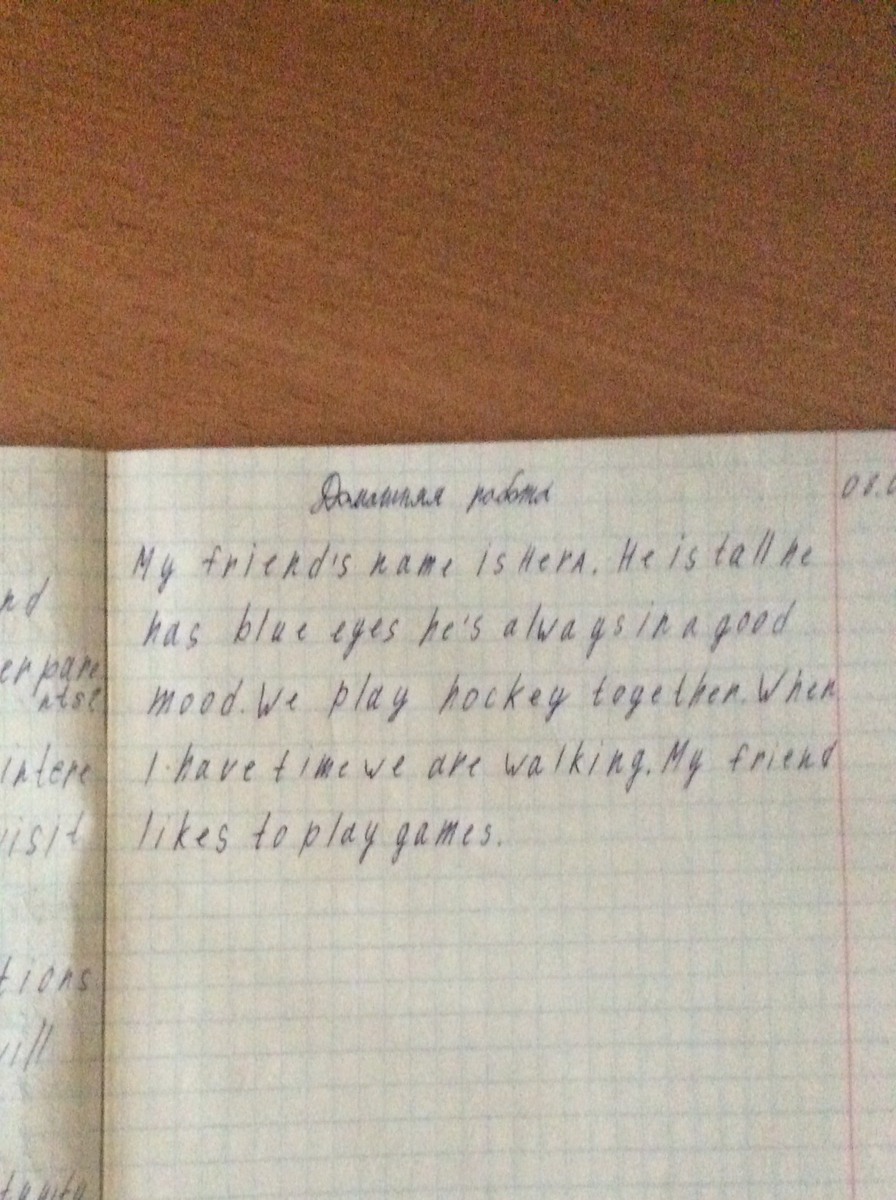 Домашняя работа
My friend's name is Her. He is tall he
has blue eyes he's always in a good
mood. We play hockey together. When
I have time we are walking. My friend
likes to play games.
nd
er pare
ntse
intere
visit
tions
will